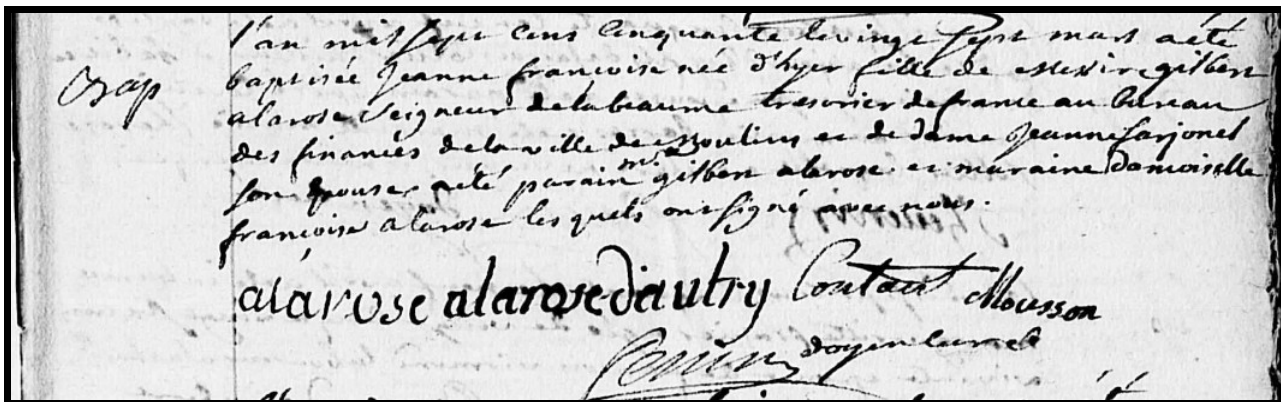 l'an mil sept cens cinquante le vingt sept mars a été
Bap
baptisée Jeanne françoise née d'hyer fille de Messire gilbert
alarose Seigneur de la beaume tresorier de france au bureau
des finances de la ville de Moulins et de dame Jeanne farjonel
son epouse, a été parain mr. gilbert alarose et maraine damoiselle
françoise alarose les quels ont signé avec nous.
alárose alarose d'autry Contant Mousson
doyen curé